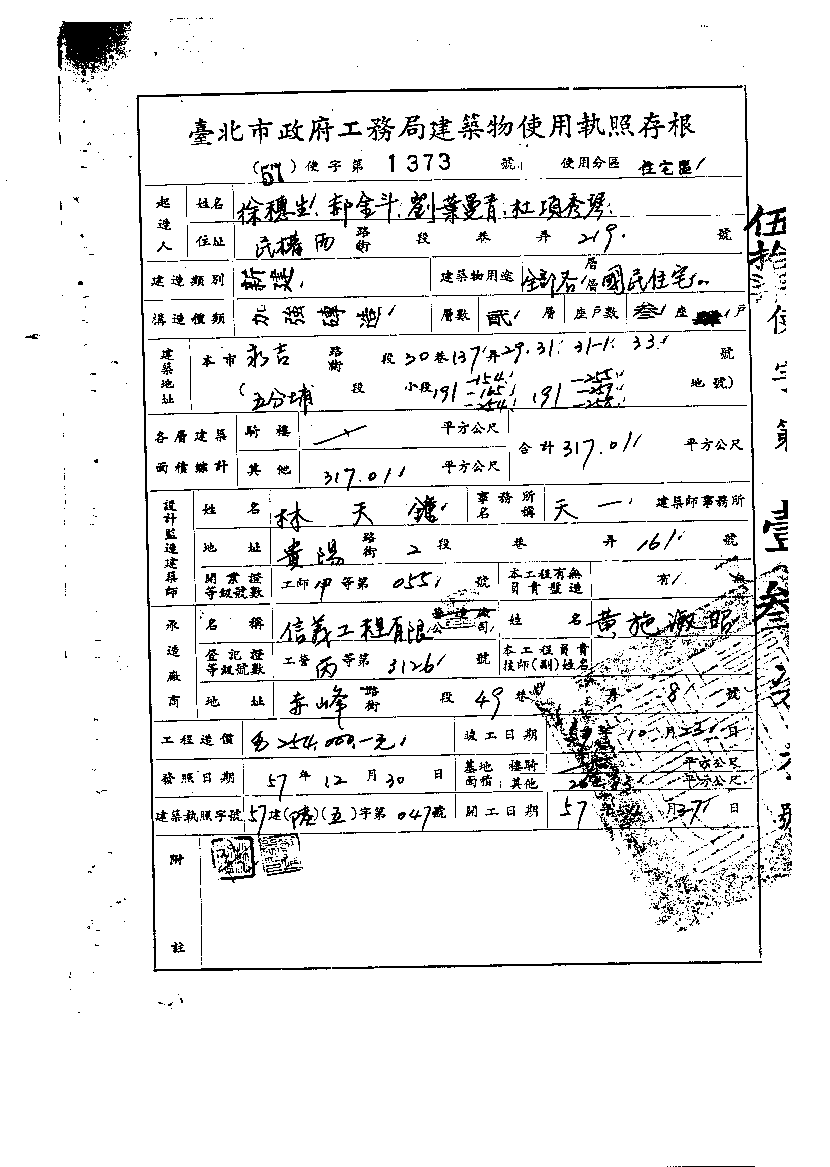 臺北市政府工務局建築物使用執照存根
(57) 使字第 1373 號 使用分區 住宅區
起造人 姓名 徐穗生 郝金斗 劉葉曼青 杜項秀琴
住址 民權西 路街 段 巷 弄 219 號
建造類別 新建 建築物用途 全部各層 國民住宅
構造種類 加強磚造 層數 貳 層 座戶數 叁 座 戶
建築地址 本市 永吉 路街 段 30 巷 137 弄 29. 31. 31-1. 33 號
(五分埔 段 小段 191 -154 -165 -254 191 -255 地號)
各層建築面積總計 騎樓 平方公尺 合計 317.01 平方公尺
其他 317.01 平方公尺
設計監造建築師 姓名 林天 事務所名稱 天一 建築師事務所
地址 貴陽 路街 2 段 巷 弄 161 號
開業證等級號數 工師 甲 等第 055 號 本工程有無負責監造 有 無
承造廠商 名稱 信義工程有限公司 姓名 黃施
登記證等級號數 工營 丙 等第 3126 號 本工程負責技師(副)姓名
地址 赤峰 路街 段 49 巷 弄 8 號
工程造價 254,000.-元 竣工日期 年 10 月 23 日
發照日期 57 年 12 月 30 日 基地面積 騎樓 平方公尺
其他 平方公尺
建築執照字號 57 建(陸)(五)字第 047 號 開工日期 57 年 月 日
附註
伍拾 使字第壹 叁 號